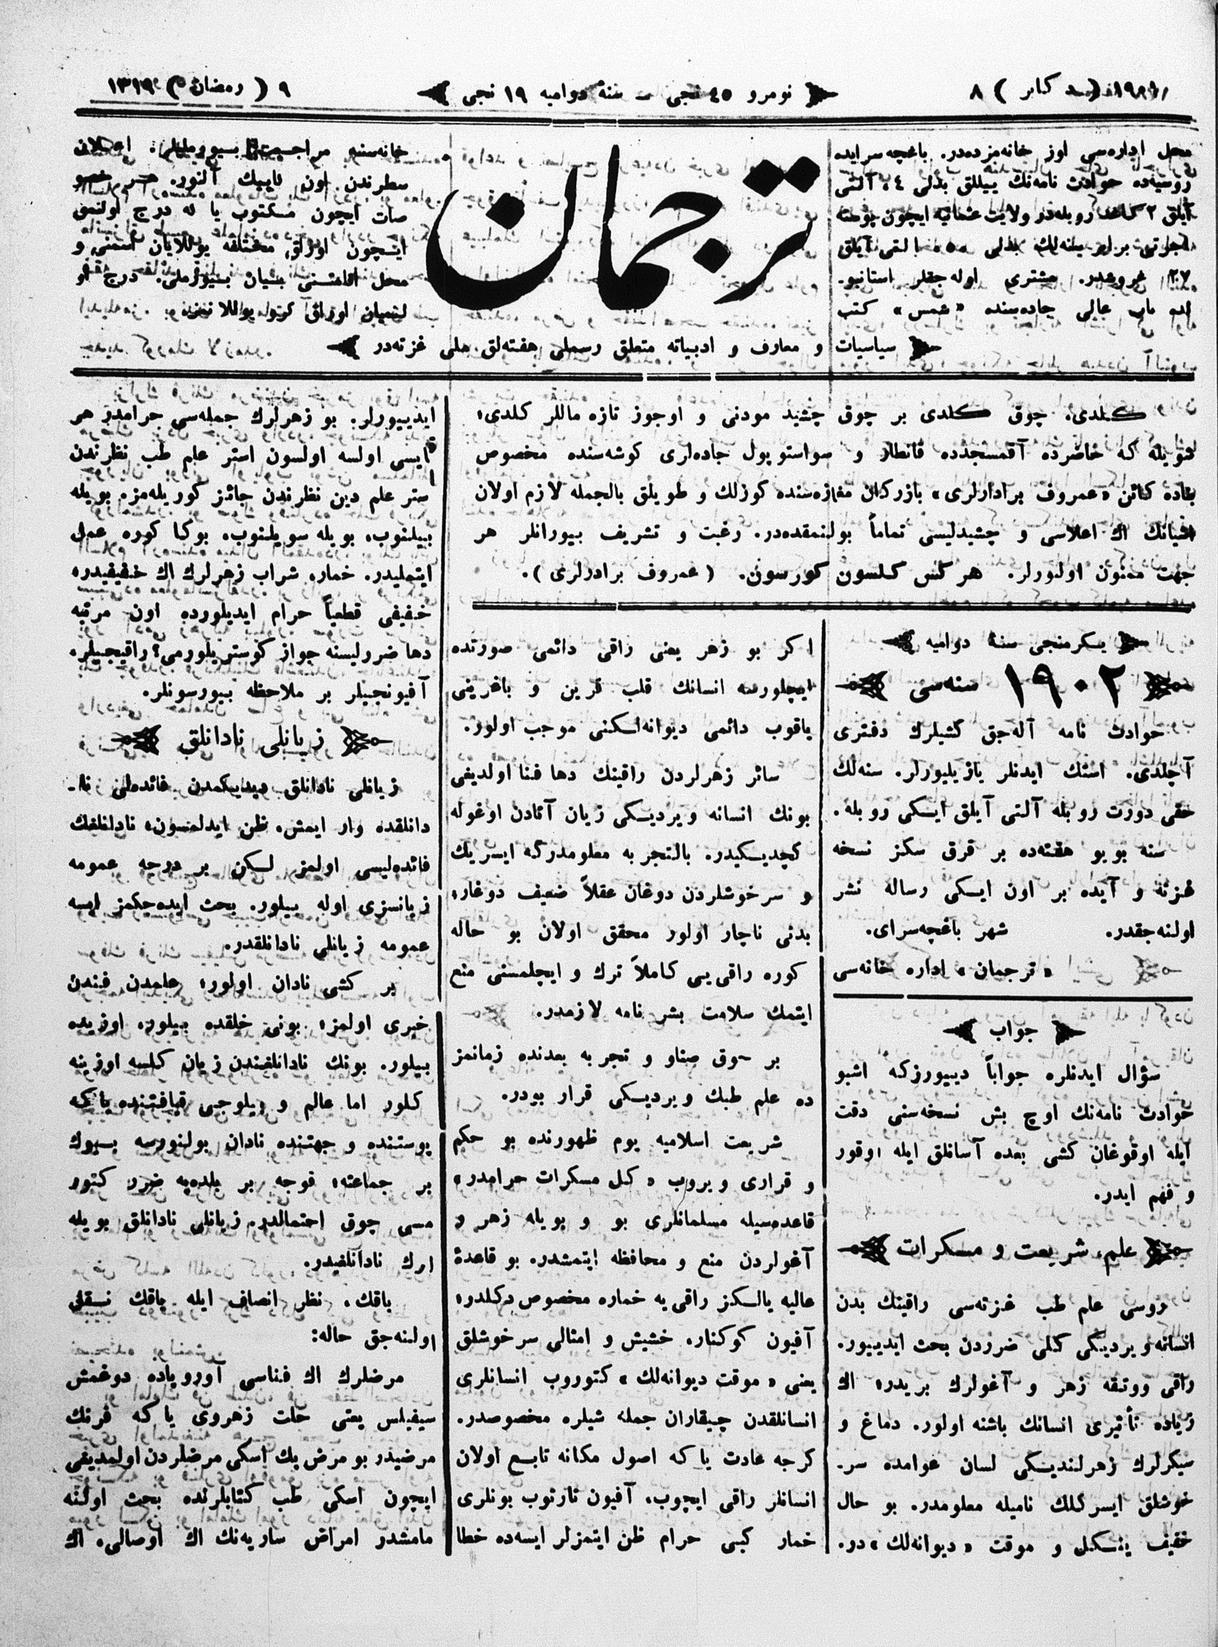 نومرو ٤٥ نجی — سنۀ دوامیه ١٩ نجی
٩ ( رمضان ) ١٣١٩
محل اداره‌سی اوز خانه‌مزده‌در. باغچه‌سرایده
روسیه‌ده حوادث نامه‌نك ییللق بدلی ٤، آلتی
آیلق ٢ روبله‌در ولایت عثمانیه ایچون پوسته
مشتری اوله‌جقلر استانبو-
باب عالی جاده‌سنده «شمس» كتب
ترجمان
خانه‌سنه مراجعت بیورملی. اعلان
سطرندن اون كاپیك آلنور.
صات ایچون مكتوب یا كه درج اولنمق
ایچون اوراق مختلفه یوللایان اسمنی و
محل اقامتنی بیان بیورملی. درج او
لنمیان اوراق كرو یوللانمز.
سیاسیات و معارف و ادبیاته متعلق رسملی هفته‌لق ملی غزته‌در
كلدی، چوق كلدی بر چوق چشید مودنی و اوجوز تازه ماللر كلدی؛
شویله كه حاضرده آقمسجدده قانطار و سواستوپول جاده‌لری كوشه‌سنده مخصوص
بناده كائن «عمروف برادارلری» بازركان مغازه‌سنده كوزلك و طویلق بالجمله لازم اولان
اشیانك اك اعلاسی و چشیدلیسی تماماً بولنمقده‌در. رغبت و تشریف بیورانلر هر
جهت ممنون اولنورلر. هر كس كلسون كورسون. (عمروف برادرلری).
یكرمنجی سنۀ دوامیه
١٩٠٢ سنه‌سی
حوادث نامه آله‌جق كشیلرك دفتری
آچلدی. استك ایدنلر یازیلیورلر. سنه‌لك
حقی دورت روبله آلتی آیلق ایكی روبله.
سنه بویو هفته‌ده بر قرق سكز نسخه
غزته و آیده بر اون ایكی رساله نشر
اولنه‌جقدر. شهر باغچه‌سرای.
«ترجمان» اداره خانه‌سی
جواب
سؤال ایدنلره جواباً دییورزكه اشبو
حوادث نامه‌نك اوچ بش نسخه‌سنی دقت
ایله اوقوغان كشی بعده آسانلق ایله اوقور
و فهم ایدر.
علم، شریعت و مسكرات
روسی علم طب غزته‌سی راقینك بدن
انسانه ویردیكی كلی ضررون بحث ایدییور.
راقی ووتقه زهر و آغولرك بریدر؛ اك
زیاده تأثیری انسانك باشنه اولور. دماغ و
سیكرلرك زهرلندیكی لسان عوامده سر-
خوشلق ایسركلك نامیله معلومدر. بو حال
خفیف یتشكیل و موقت «دیوانه‌لك» در.
اكر بو زهر یعنی راقی دائمی صورتده
ایچلورسه انسانك قلب قرین و باغرینی
یاقوب دائمی دیوانه‌لكنی موجب اولور.
سائر زهرلردن راقینك دها فنا اولدیغی
بونك انسانه ویردیكی زیان آتادن اوغوله
كچدیكیدر. بالتجربه معلومدركه ایسریك
و سرخوشلردن دوغان عقلاً ضعیف دوغار،
بدنی ناچار اولور محقق اولان بو حاله
كوره راقی‌یی كاملاً ترك و ایچلمسنی منع
ایتمك سلامت بشر نامه لازمدر.
بر چوق صناو و تجربه بعدنده زمانمز
ده علم طبك ویردیكی قرار بودر.
شریعت اسلامیه یوم ظهورنده بو حكم
و قراری ویروب «كل مسكرات حرامدر»
قاعده‌سیله مسلمانلری بو و بویله زهر و
آغولردن منع و محافظه ایتمشدر. بو قاعدۀ
عالیه یالكز راقی‌یه خماره مخصوص دكلدر؛
آفیون كوكنار، خشیش و امثالی سرخوشلق
یعنی «موقت دیوانه‌لك» كتوروب انسانلری
انسانلقدن چیقاران جمله شیلره مخصوصدر.
كرجه عادت یا كه اصول مكانه تابع اولان
انسانلر راقی ایچوب، آفیون تارتوب بونلری
خمار كبی حرام ظن ایتمزلر ایسه‌ده خطا
ایدییورلر. بو زهرلرك جمله‌سی حرامدر هر
قایسی اولسه اولسون استر علم طب نظرندن
استر علم دین نظرندن جائز كوریله‌مز. بویله
بیلنوب، بویله سویلنوب، بوكا كوره عمل
ایتملیدر. خمار، شراب زهرلرك اك خفیفیدر،
خفیفی قطعیاً حرام ایدیلورده اون مرتبه
دها ضررلیسنه جواز كوستریلورمی؟ راقیجیلر.
آفیونجیلر بر ملاحظه بیورسونلر.
زیانلی نادانلق
زیانلی نادانلق دیدیكمدن فائده‌لی نا-
دانلقده وار ایمش، ظن ایدلمسون؛ نادانلغك
فائده‌لیسی اولمز لكن بر درجه عمومه
زیانسزی اوله بیلور. بحث ایده‌جكمز ایسه
عمومه زیانلی نادانلقدر.
بر كشی نادان اولور؛ علمدن فندن
خبری اولمز؛ بونی خلقده بیلور، اوزیده
بیلور. بونك نادانلغندن زیان كلسه اوزینه
كلور اما عالم و بیلوجی قیافتنده یا كه
پوستنده و جهتنده نادان بولنورسه بیوك
بر جماعته، قوجه بر بلده‌یه ضرر كتور
مسی چوق احتمالدر. زیانلی نادانلق بویله
لرك نادانلغیدر.
باقك، نظر انصاف ایله باقك نقل
اولنه‌جق حاله:
مرضلرك اك فناسی آوروپاده دوغمش
سیفیلس یعنی علت زهروی یا كه فرنك
مرضیدر بو مرض پك اسكی مرضلردن اولمدیغی
ایچون اسكی طب كتابلرنده بحث اولنه
مامشدر امراض ساریه‌نك اك اوصالی، اك